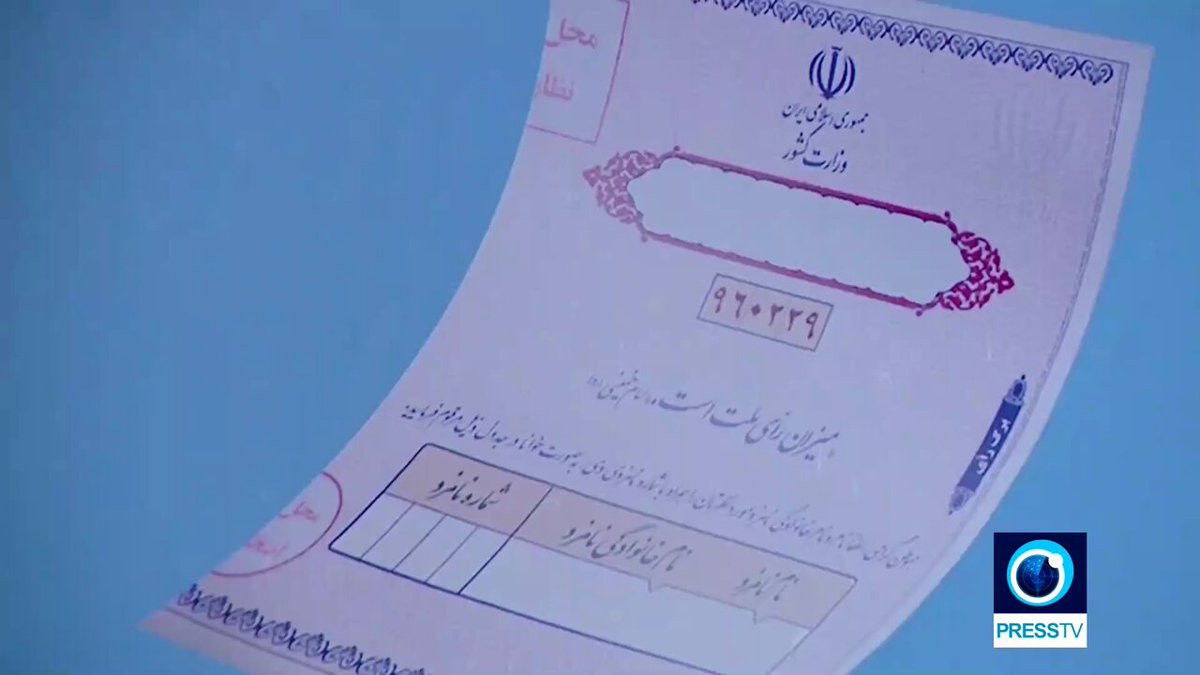 محل
نظار
جمهوری اسلامی ایران
وزارت کشور
۹۶۰۲۲۹
میزان رأی ملت است. امام خمینی (ره)
برگ رأی
شماره نامزد
نام خانوادگی نامزد
نام نامزد
محل
PRESSTV